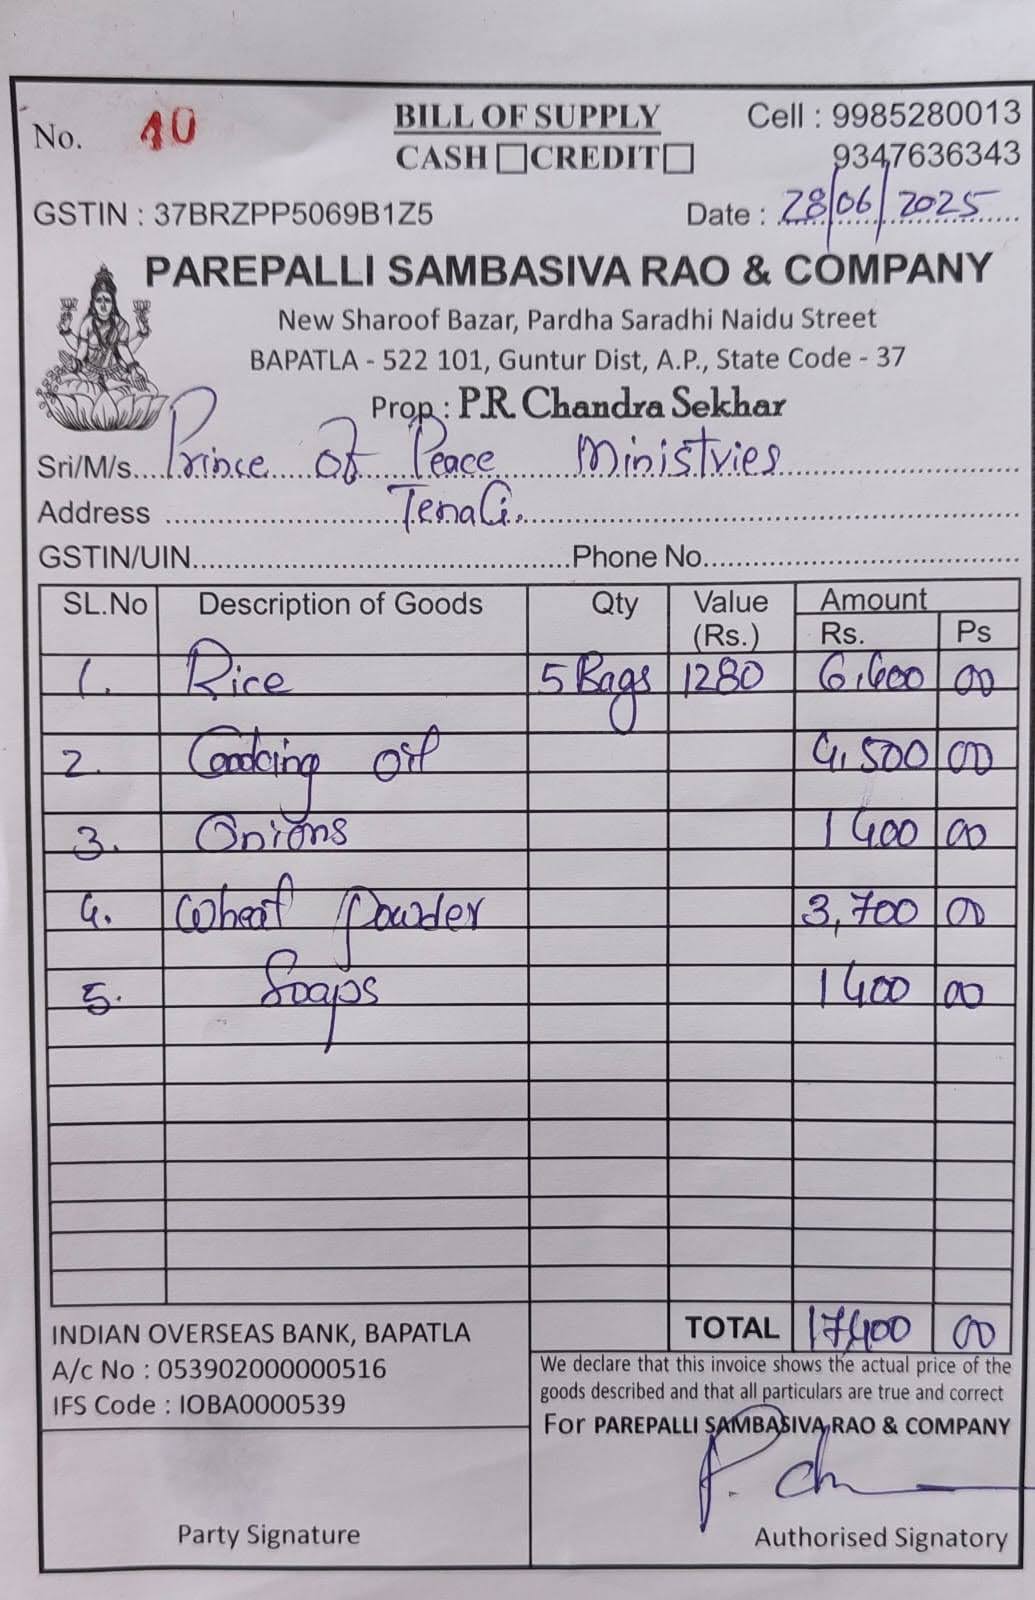 No. 10
BILL OF SUPPLY
CASH CREDIT
Cell : 9985280013
9347636343
GSTIN : 37BRZPP5069B1Z5
Date : 28/06/2025
PAREPALLI SAMBASIVA RAO & COMPANY
New Sharoof Bazar, Pardha Saradhi Naidu Street
BAPATLA - 522 101, Guntur Dist, A.P., State Code - 37
Prop : P.R. Chandra Sekhar
Sri/M/s. Prince Of Peace Ministries
Address Tenali.
GSTIN/UIN Phone No.
SL.No Description of Goods Qty Value (Rs.) Amount
Rs. Ps
1. Rice 5 Bags 1280 6,400 00
2. Coocking oil 4,500 00
3. Onions 1400 00
4. Wheat Powder 3,700 00
5. Soaps 1400 00
TOTAL 17400 00
INDIAN OVERSEAS BANK, BAPATLA
A/c No : 053902000000516
IFS Code : IOBA0000539
We declare that this invoice shows the actual price of the
goods described and that all particulars are true and correct
For PAREPALLI SAMBASIVA RAO & COMPANY
Party Signature
Authorised Signatory